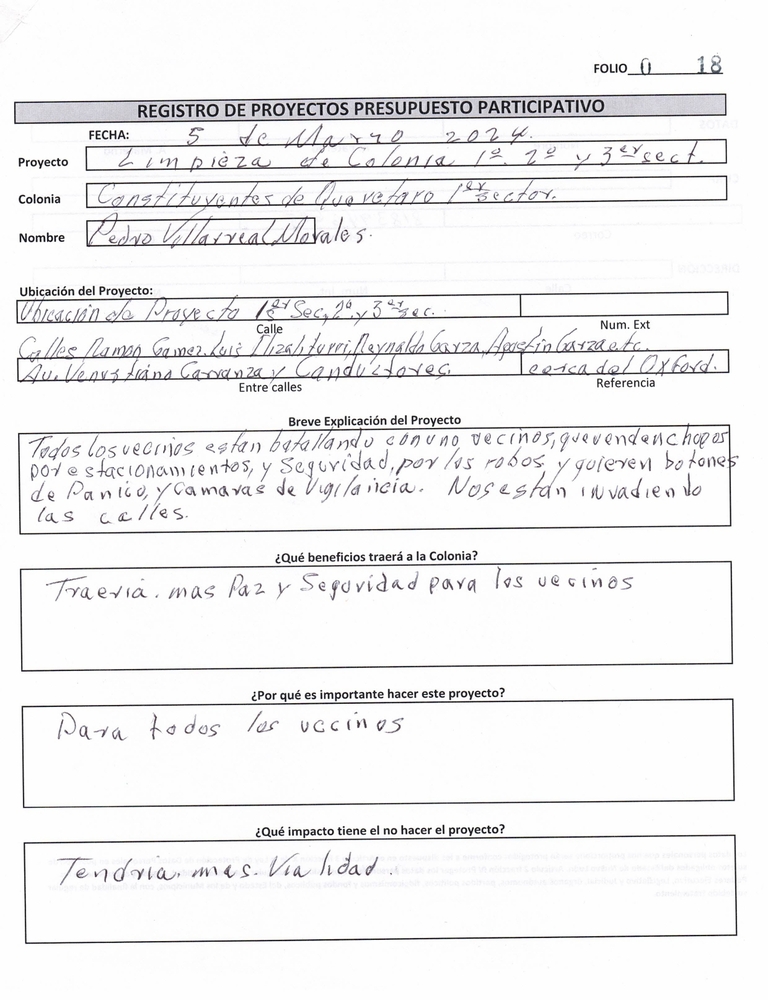 FOLIO 0 18
REGISTRO DE PROYECTOS PRESUPUESTO PARTICIPATIVO
FECHA: 5 de Marzo 2024.
Proyecto Limpieza de Colonia 1º. 2º y 3er sect.
Colonia Constituyentes de Queretaro 1er sector.
Nombre Pedro Villarreal Morales.
Ubicación del Proyecto:
Ubicación de Proyecto 1er Sec, 2º y 3er sec.
Calle Num. Ext
Calles Ramon Gamez, Luis Elizaliturri, Reynaldo Garza, Agostin Garza etc.
Av. Venustiano Carranza y Conductores. cerca del Oxford.
Entre calles Referencia
Breve Explicación del Proyecto
Todos los vecinos estan batallando con uno vecinos, que venden chopos
por estacionamientos, y Seguridad, por los robos, y quieren botones
de Panico, y Camaras de Vigilancia. Nos estan invadiendo
las calles.
¿Qué beneficios traerá a la Colonia?
Traeria. mas Paz y Seguridad para los vecinos
¿Por qué es importante hacer este proyecto?
Para todos los vecinos
¿Qué impacto tiene el no hacer el proyecto?
Tendria. mas. Vialidad.